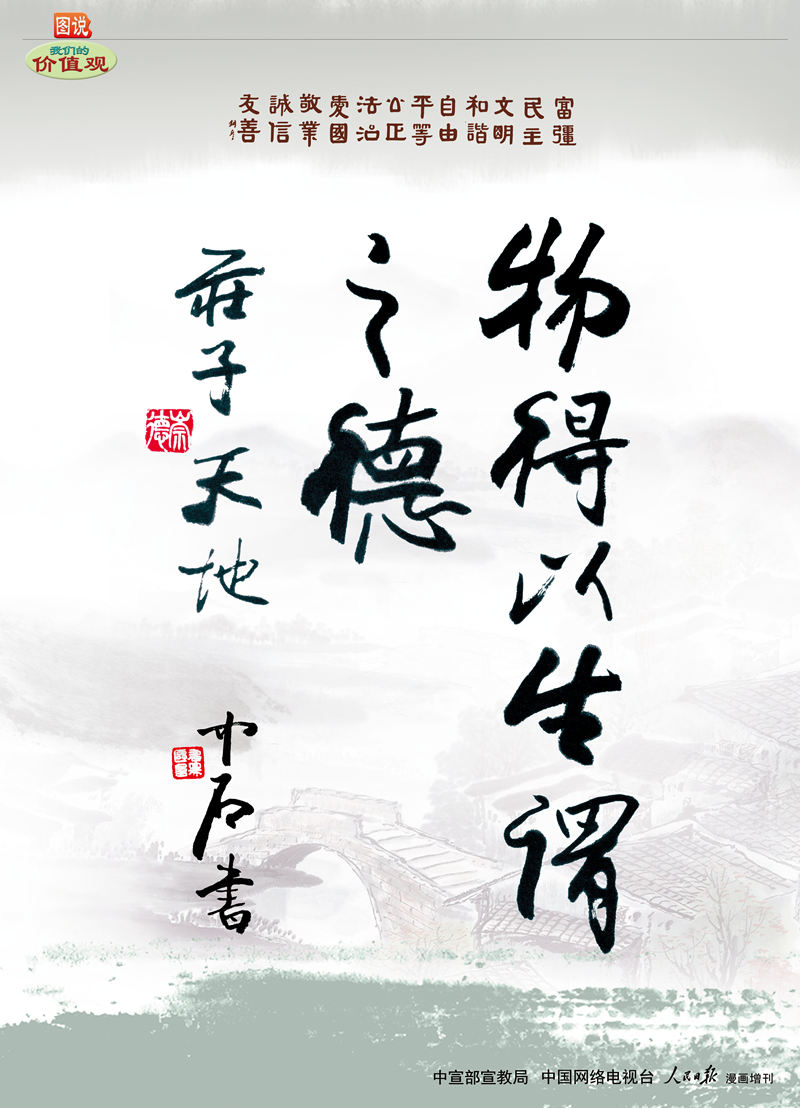 图说
我们的
价值观
富强
民主
文明
和諧
自由
平等
公正
法治
愛國
敬業
誠信
友善
物得以生謂
之德
莊子天地
崇德
中石書
中宣部宣教局 中国网络电视台 人民日报 漫画增刊